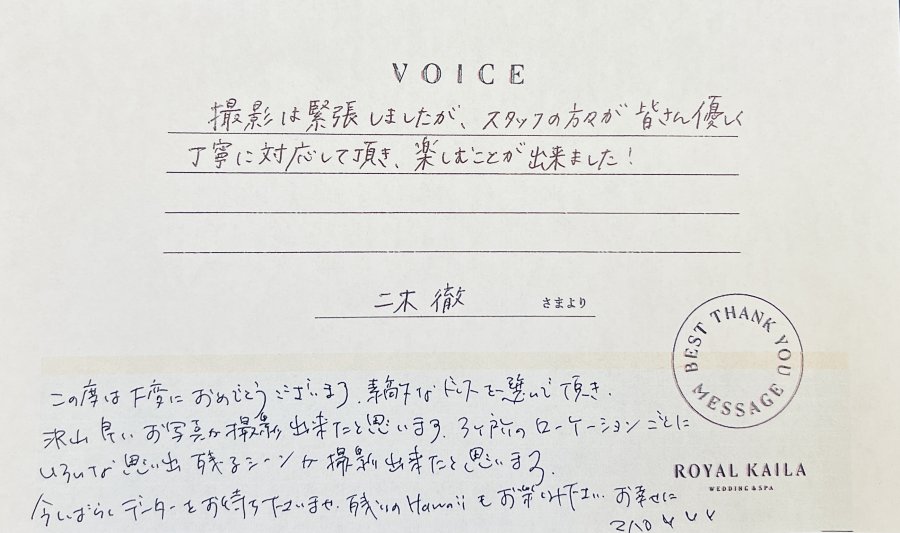 VOICE
撮影は緊張しましたが、スタッフの方々が皆さん優しく
丁寧に対応して頂き、楽しむことが出来ました！
二木 徹
さまより
BEST THANK YOU MESSAGE
この度は大変におめでとうございます。素敵なドレスを選んで頂き、
沢山良いお写真が撮影出来たと思います。3ヶ所のローケーションごとに
いろいな思い出残るシーンが撮影出来たと思います。
今しばらくデーターをお待ち下さいませ。残りのHawaiiもお楽しみ下さい。お幸せに
ROYAL KAILA
WEDDING & SPA